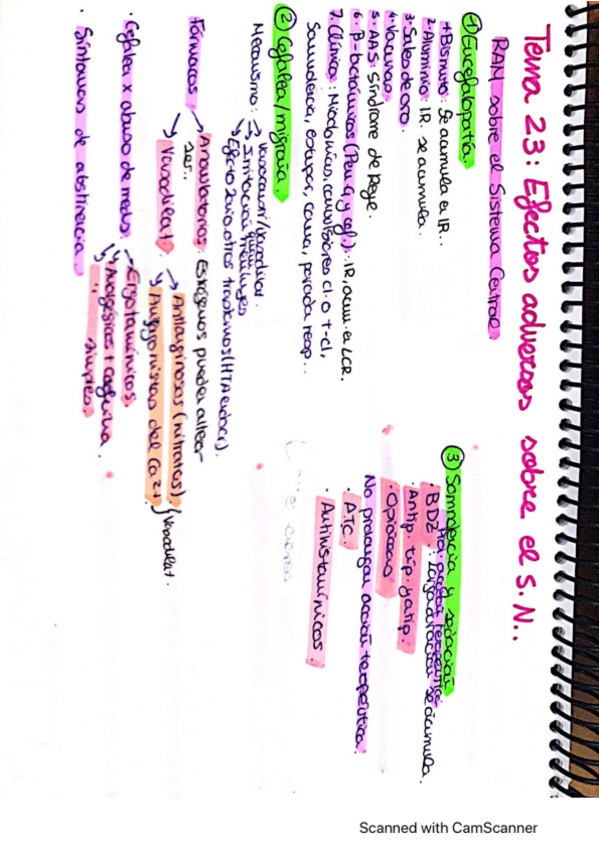 Tema 23: Efectos adversos sobre el S.N..
RAM sobre el Sistema Central
① Encefalopatía.
1. Bismuto: Se acumula en IR..
2. Aluminio: IR. se acumula.
3. Sales de oro.
4. Vacunas
5. AAS: Síndrome de Reye.
6. β-lactámicos (Pen G y cef.): IR, acum. en LCR.
7. Clínica: Mioclonías, convulsiones cl. o t-cl,
Somnolencia, estupor, coma, parada resp...
② Cefalea/migraña.
Mecanismo: → Vasoconst/Vasodilat.
→ Irritación meninges
→ Efecto 2ario otros trastornos (HTA
Fármacos → Anovulatorios: Estrógenos pueden alterar
ser..
→ Vasodilat. → Antianginosos (nitratos)
→ Antagonistas del Ca2+ } Vasodilat.
· Cefalea x abuso de meds. → Ergotamínicos.
→ Analgésicos + cafeína.
→ " simples.
· Síntomas de abstinencia
③ Somnolencia y sedación
acción terapéutica
· BDZ: larga duración se acumula.
· Antip. tip. y atip.
· Opiáceos
No prolongan acción terapéutica.
· ATC.
· Antihistamínicos.
Scanned with CamScanner